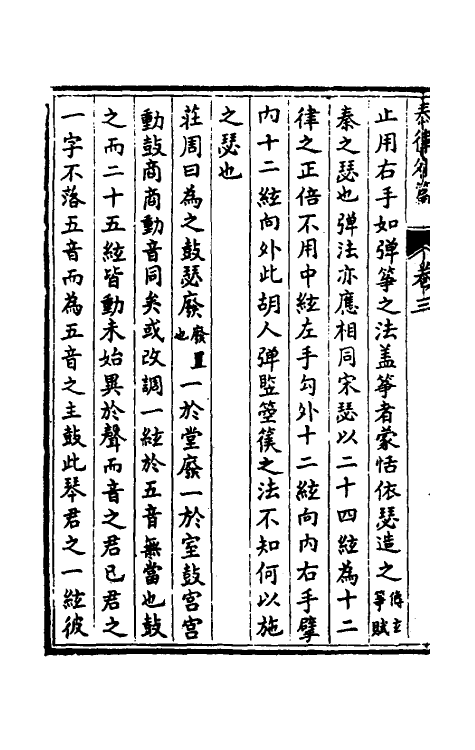 泰律外篇 卷三
止用右手如弹筝之法盖筝者蒙恬依瑟造之傅玄筝赋
秦之瑟也弹法亦應相同宋瑟以二十四絃為十二
律之正倍不用中絃左手勾外十二絃向内右手擘
内十二絃向外此胡人弹竪箜篌之法不知何以施
之瑟也
莊周曰為之鼓瑟廢廢置也一於堂廢一於室鼓宮宮
動鼓商商動音同矣或改調一絃於五音無當也鼓
之而二十五絃皆動未始異於聲而音之君已君之
一字不落五音而為五音之主鼓此琴君之一絃彼